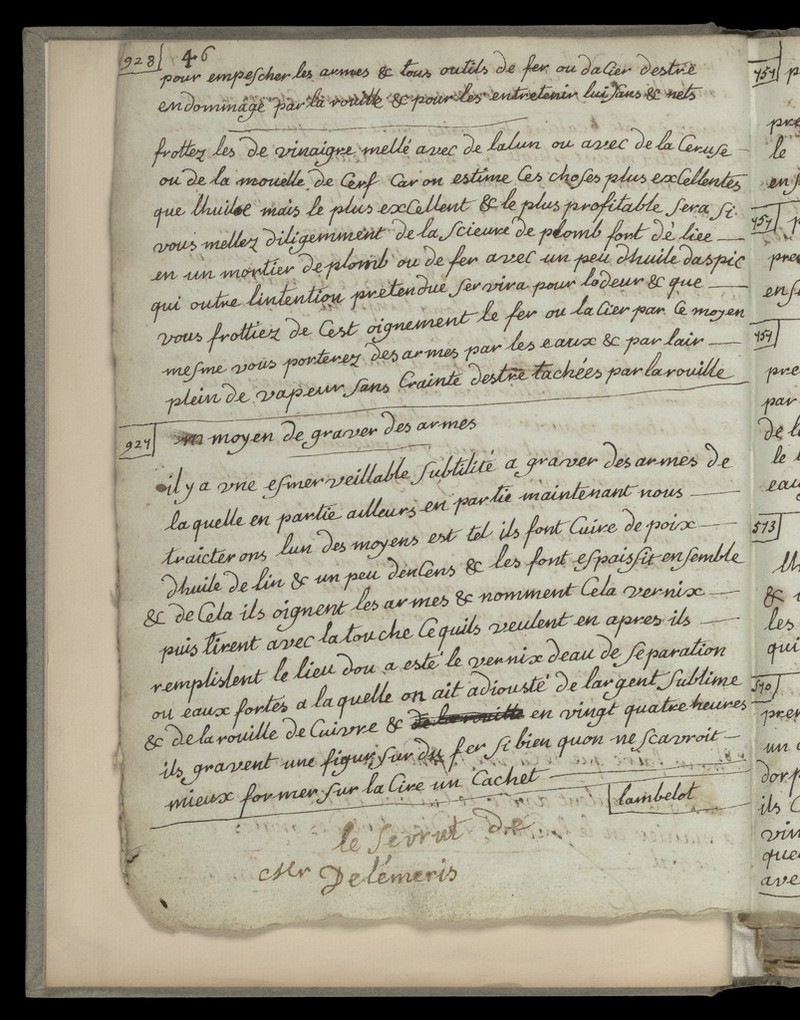 928 46
pour empescher les armes & tous outils de fer ou dacier destre
endommagé par la rouille & pour les entretenir luisans & nets
frottez les de vinaigre mellé avec de lalun ou avec de la Ceruse
ou de la mouelle de Cerf Car on estime Ces choses plus excellentes
que lhuile mais le plus excellent & le plus profitable sera si
vous mellez diligemment de la scieure de plomb fort deliee
en un mortier de plomb ou de fer avec un peu dhuile daspic
qui outre lintention pretendue servira pour lodeur & que
vous frottiez de Cest oignement le fer ou lacier par Ce moyen
mesme vous porterez des armes par les eaux & par lair
plein de vapeur sans Crainte destre tachées par la rouille
927 moyen de graver des armes
il y a vne esmerveillable subtilité a graver des armes de
laquelle en partie ailleurs en partie maintenant nous
traicterons lun des moyens est tel ils font Cuire de poix
dhuile de lin & un peu dencens & les font espaissir ensemble
& de Cela ils oignent les armes & nomment Cela vernix
puis tirent avec la touche Ce quils veulent en apres ils
remplissent le lieu dou a esté le vernix deau de separation
ou eaux fortes a laquelle on ait adiousté de largent sublime
& de la rouille de Cuivre & de la rouille en vingt quatre heures
ils gravent une figure sur du fer si bien quon ne scavroit
mieux former sur la Cire un Cachet
lambelot
le de
Mr Delémeris
757 p
pre
le
ens
757 p
pre
ens
757
pre
par
de l
le
eau
573
lh
&
les
qui
570
pre
un
dor
ils
vin
que
ave